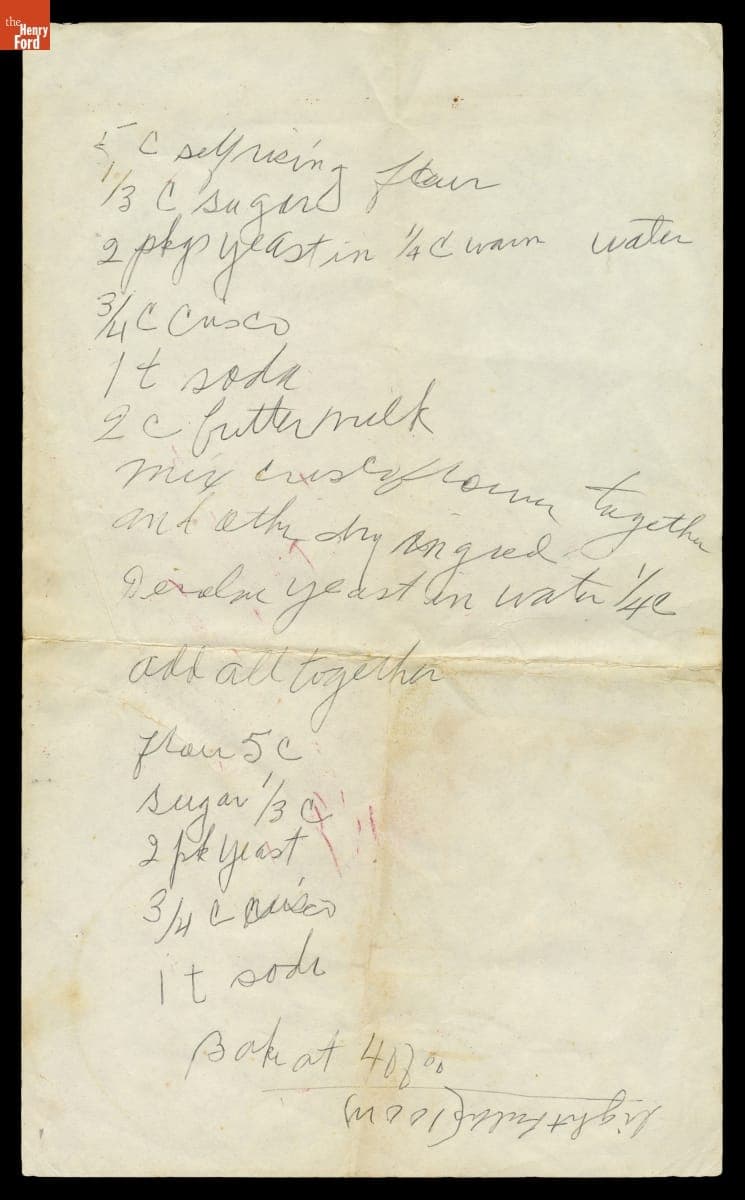 the
Henry
Ford
5 C selfrising flour
1/3 C sugar
2 pkgs yeast in 1/4 C warm water
3/4 C Crisco
1 t soda
2 C buttermilk
mix crisco flour together
and other dry ingred
Desolve yeast in water 1/4 C
add all together
flour 5 C
sugar 1/3 C
2 pk yeast
3/4 C crisco
1 t soda
Bake at 400